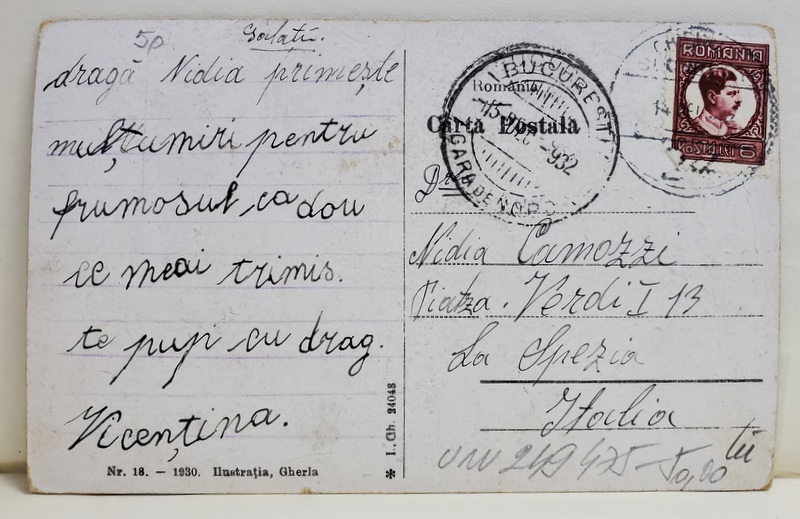 50
Galați.
dragă Nidia primește
mulțumiri pentru
frumosul cadou
ce meai trimis.
te pup cu drag.
Vicențina.
Nr. 18. — 1930. Ilustrația, Gherla
* I. Gh. 24048
România
Carta Postala
BUCUREȘTI
15
932
GARA DE NORD
ROMANIA
POSTA LEI 6
Nidia Camozzi
Piatza. Verdi I 13
La Spezia
Italia
249475 - 50,00 lei